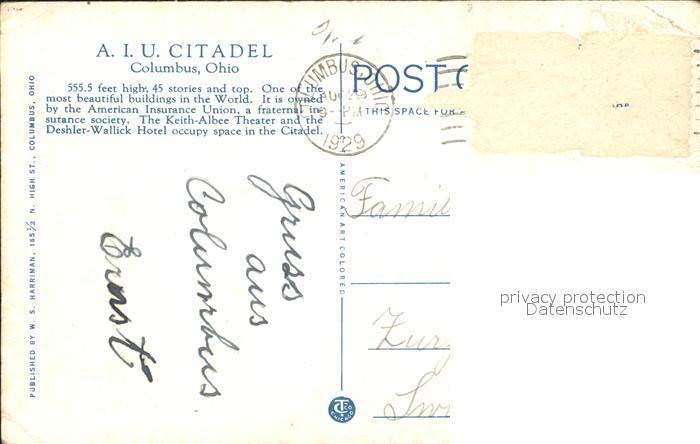 A. I. U. CITADEL
Columbus, Ohio
555.5 feet high, 45 stories and top. One of the
most beautiful buildings in the World. It is owned
by the American Insurance Union, a fraternal in-
surance society. The Keith-Albee Theater and the
Deshler-Wallick Hotel occupy space in the Citadel.
PUBLISHED BY W. S. HARRIMAN, 165½ N. HIGH ST., COLUMBUS, OHIO
Gruss
aus
Columbus
Ernst
COLUMBUS, OHIO
AUG
PM
1929
POST C
THIS SPACE FOR
AMERICAN ART COLORED
Famil
Zur
Sw
CHICAGO
privacy protection
Datenschutz